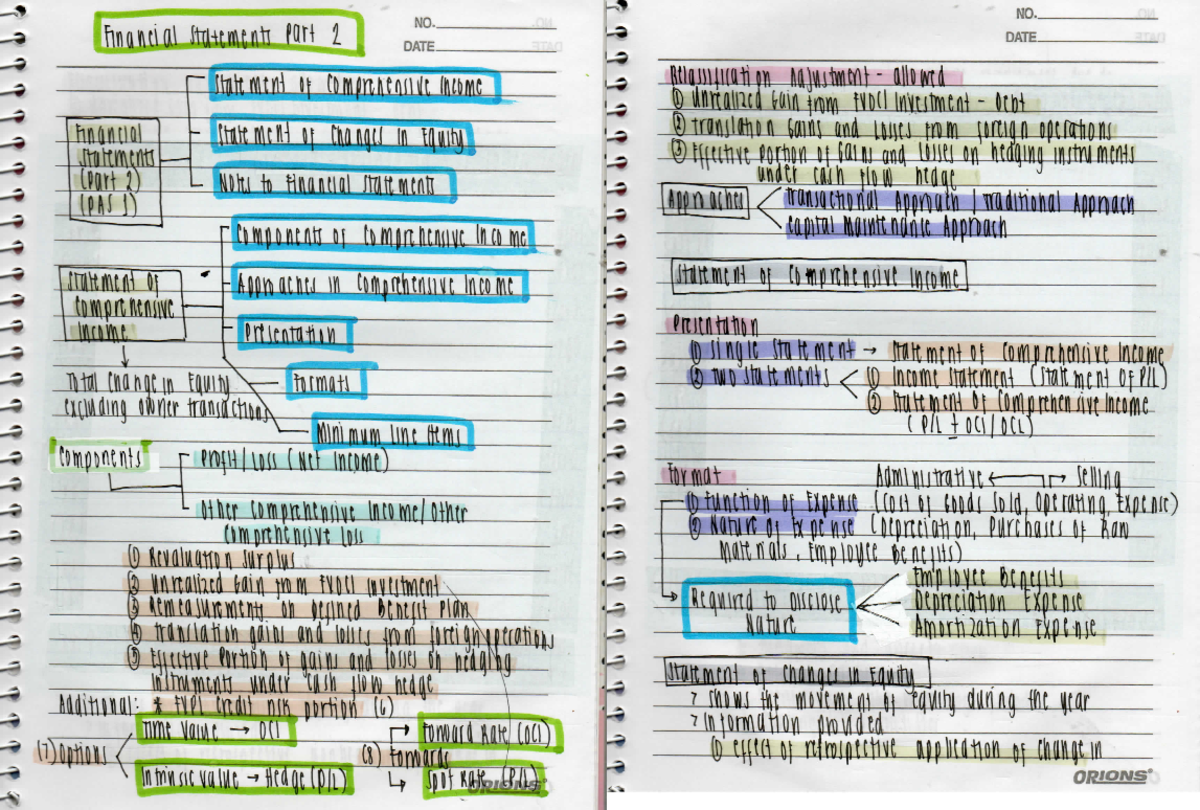 Financial Statements Part 2
NO.
DATE
Statement of Comprehensive Income
Statement of Changes in Equity
Notes to Financial Statements
Financial
Statements
(Part 2)
(PAS 1)
Components of Comprehensive Income
Approaches in Comprehensive Income
Presentation
Formats
Minimum Line Items
Statement of
Comprehensive
Income
Total Change in Equity
excluding owner transactions
Components
Profit/Loss (Net Income)
Other Comprehensive Income/Other
Comprehensive Loss
① Revaluation Surplus
② Unrealized Gain from FVOCI Investment
③ Remeasurements on Defined Benefit Plan
④ Translation gains and losses from foreign operations
⑤ Effective Portion of gains and losses on hedging
instruments under cash flow hedge
Additional: * FVPL credit risk portion (6)
(7) Options
Time Value → OCI
Intrinsic Value → Hedge (P/L)
(8) Forwards
Forward Rate (OCI)
Spot Rate (P/L)
ORIONS
NO.
DATE
Relassification Adjustment - allowed
① Unrealized Gain from FVOCI Investment - Debt
② Translation Gains and Losses from foreign operations
③ Effective Portion of Gains and Losses on hedging instruments
under cash flow hedge
Approaches
Transactional Approach Traditional Approach
Capital Maintenance Approach
Statement of Comprehensive Income
Presentation
① Single Statement → Statement of Comprehensive Income
② Two Statements
① Income Statement (Statement of P/L)
② Statement of Comprehensive Income
(P/L ± OCI/OCL)
Format
Administrative ← → Selling
① Function of Expense (Cost of Goods Sold, Operating, Expense)
② Nature of Expense (Depreciation, Purchases of Raw
Materials, Employee Benefits)
Required to Disclose
Nature
Employee Benefits
Depreciation Expense
Amortization Expense
Statement of Changes in Equity
> shows the movement of equity during the year
> Information provided
① effect of retrospective application of change in
ORIONS